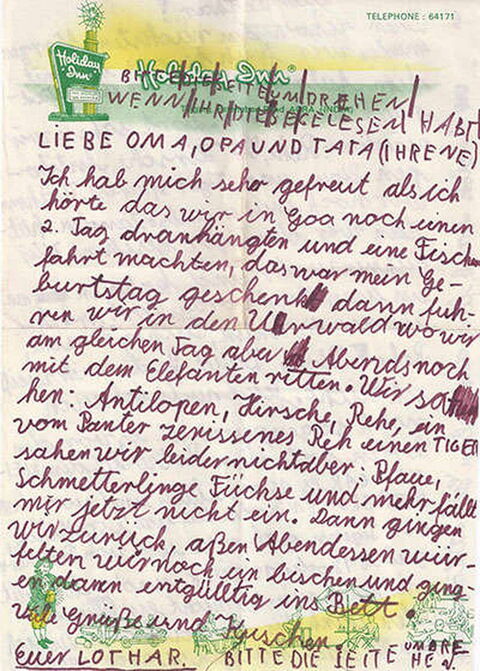 TELEPHONE : 64171
Holiday Inn®
Holiday Inn®
BITTE DIE SEITE UMDREHEN
WENN IHR DIESE GELESEN HABT
AGRA
LIEBE OMA, OPA UND TATA (IHRENE)
Ich hab mich sehr gefreut als ich
hörte das wir in Goa noch einen
2. Tag dranhängten und eine Fisch
fahrt machten, das war mein Ge-
burtstag geschenk dann fuh-
ren wir in den Urwald wo wir
am gleichen Tag aber Abends noch
mit dem Elefanten ritten. Wir sa
hen: Antilopen, Hirsche, Rehe, ein
vom Panter zerissenes Reh einen TIGER
sahen wir leider nicht aber: Pfaue,
Schmetterlinge Füchse und mehr fällt
mir jetzt nicht ein. Dann gingen
wir zurück, aßen Abendessen wür-
felten wir noch ein bischen und ging
en dann entgültig ins Bett.
Viele Grüße und Kuschen
Euer LOTHAR. BITTE DIE SEITE UMDRE
HEN